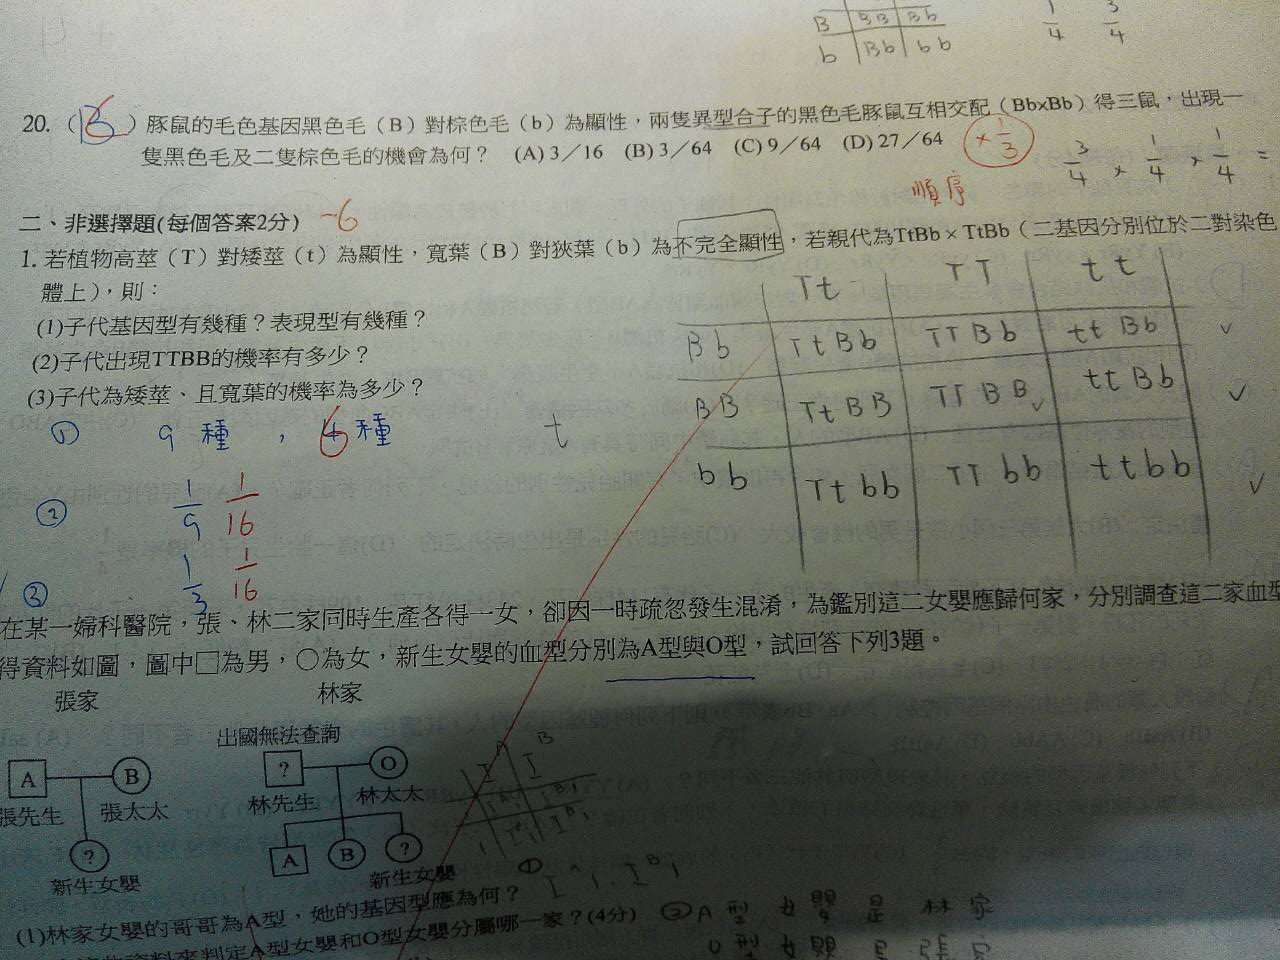 B | BB | Bb
b | Bb | bb
1/4 3/4
20. (B) 豚鼠的毛色基因黑色毛（B）對棕色毛（b）為顯性，兩隻異型合子的黑色毛豚鼠互相交配（BbxBb）得三鼠，出現一
隻黑色毛及二隻棕色毛的機會為何？ (A) 3／16 (B) 3／64 (C) 9／64 (D) 27／64
× 1/3
順序
3/4 × 1/4 × 1/4 =
二、非選擇題(每個答案2分) -6
1. 若植物高莖（T）對矮莖（t）為顯性，寬葉（B）對狹葉（b）為不完全顯性，若親代為TtBb × TtBb（二基因分別位於二對染色
體上），則：
(1)子代基因型有幾種？表現型有幾種？
(2)子代出現TTBB的機率有多少？
(3)子代為矮莖、且寬葉的機率為多少？
Tt TT tt
Bb TtBb TTBb ttBb ✓
BB TtBB TTBB✓ ttBb ✓
bb Ttbb TTbb ttbb ✓
① 9種，4種
6
t
② 1/9 1/16
③ 1/3 1/16
在某一婦科醫院，張、林二家同時生產各得一女，卻因一時疏忽發生混淆，為鑑別這二女嬰應歸何家，分別調查這二家血型
得資料如圖，圖中□為男，○為女，新生女嬰的血型分別為A型與O型，試回答下列3題。
張家 林家
出國無法查詢
A B ? O
張先生 張太太 林先生 林太太
? A B ?
新生女嬰 新生女嬰
(1)林家女嬰的哥哥為A型，她的基因型應為何？
料來判定A型女嬰和O型女嬰分屬哪一家？(4分) ② A型女嬰是林家
O型女嬰是張家